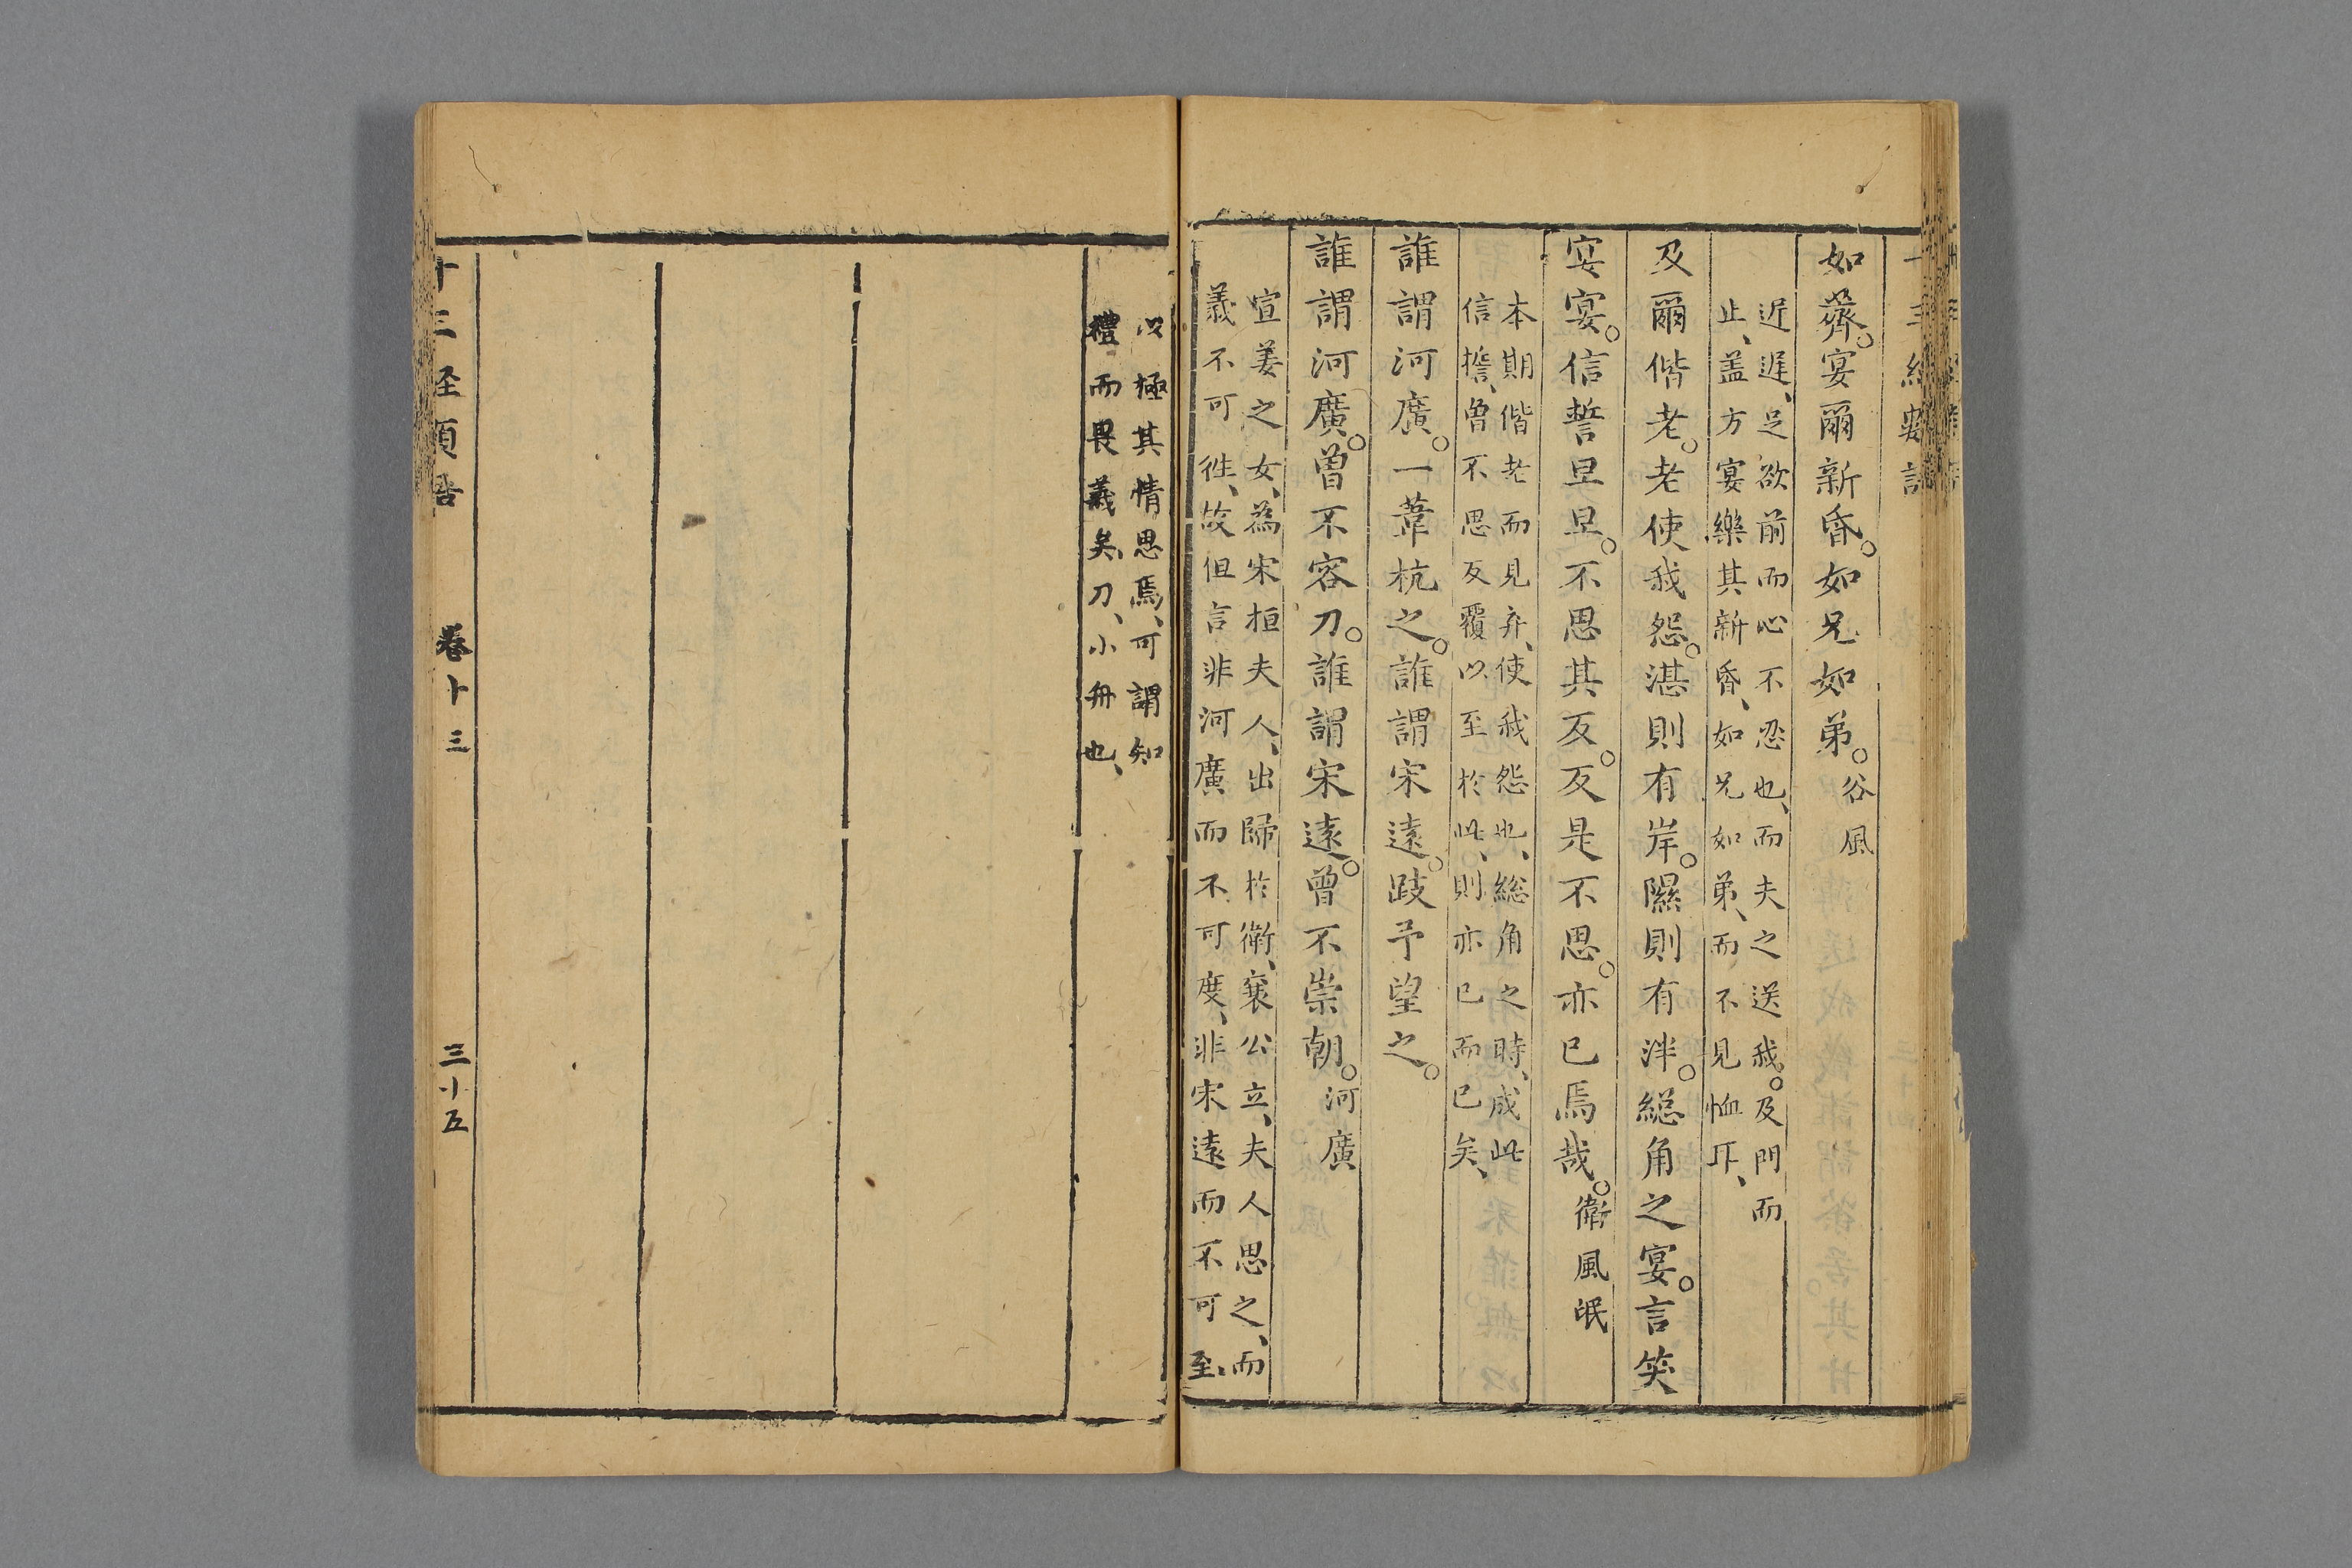 如薺。宴爾新昏。如兄如弟。谷風
近遲、足欲前而心不忍也、而夫之送我。及門而
止、盖方宴樂其新昏、如兄如弟、而不見恤耳、
及爾偕老。老使我怨。湛則有岸。隰則有泮。総角之宴。言笑
宴宴。信誓旦旦。不思其反。反是不思。亦已焉哉。衛風氓
本期偕老而見弃、使我怨也、総角之時、成此
信誓、曾不思反覆以至於此、則亦已而已矣、
誰謂河廣。一葦杭之。誰謂宋遠。跂予望之。
誰謂河廣。曾不容刀。誰謂宋遠。曾不崇朝。河廣
宣姜之女、為宋桓夫人、出歸於衛、襄公立、夫人思之、而
義不可徃、故但言非河廣而不可度、非宋遠而不可至、
以極其情思焉、可謂知
禮而畏義矣、刀、小舟也、
十三经類吿 卷十三 三十五